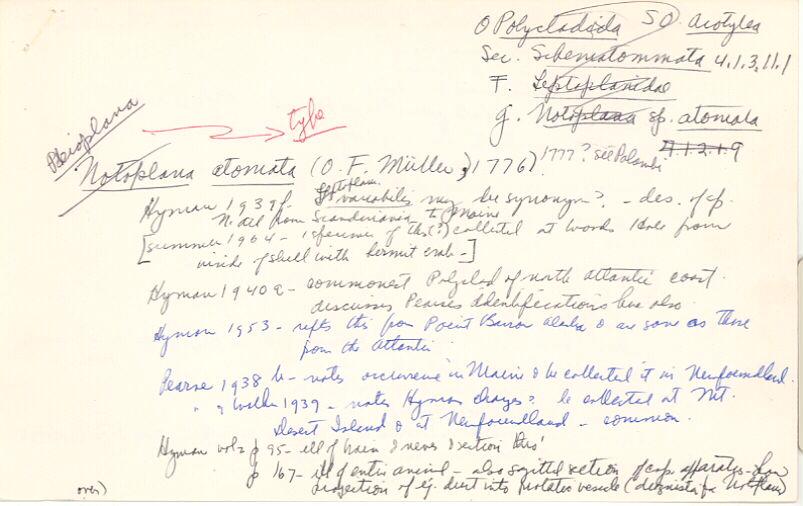 O Polycladida SO. Acotylea
Sec. Schematommata 4.1.3.11.1
F. Leptoplanidae
g. Notoplana sp. atomata
4.1.2.1.9
type
Notoplana atomata (O. F. Müller, 1776) 1777? see Palombi
Hyman 1939f- variabilis may be synonym? - des. of cp.
N. Atl from Scandinavia to Maine
[summer 1964 - 1 specimen of this(?) collected at Woods Hole from
inside of shell with hermit crab -]
Hyman 1940a - commonest Polyclad of north Atlantic coast.
discusses Pearse's identifications here also
Hyman 1953 - repts this from Point Barrow Alaska & are same as those
from the Atlantic
Pearse 1938 b - notes occurrence in Maine & he collected it in Newfoundland.
" & Walker 1939 - notes Hyman changes & he collected at Mt.
Desert Island & at Newfoundland - common.
Hyman vol 2 p 95 - ill of brain & nerves & section thru'
p 167 - ill of entire animal - also sagittal section of cop. apparatus - show
projection of ej. duct into prostatic vesicle ( for Notoplana)
over)